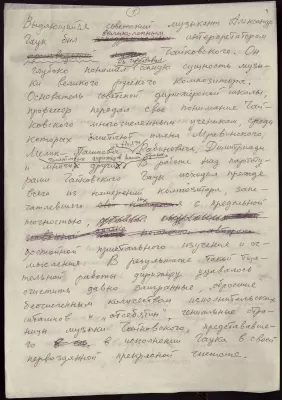 Выдающийся советский музыкант Александр
Гаук был великолепным интерпретатором
Чайковского. Он
глубоко понимал самую сущность музы-
ки великого русского композитора.
Основатель советской дирижерской школы,
профессор передал свое понимание Чай-
ковского многочисленным ученикам, среди
которых блистают имена Мравинского,
Мелик-Пашаева, Рабиновича, Димитриади
и многих других. В работе над партиту-
рами Чайковского Гаук исходил прежде
всего из намерений композитора, запе-
чатлевшего их с предельной
точностью,
достойной пристального изучения и ос-
мысления. В результате такой тща-
тельной работы дирижеру удавалось
очистить давно заигранные, обросшие
бесчисленным количеством исполнительских
штампов и "отсебятин", гениальные стра-
ницы музыки Чайковского, представавше-
го в исполнении Гаука в своей
первозданной прекрасной чистоте.